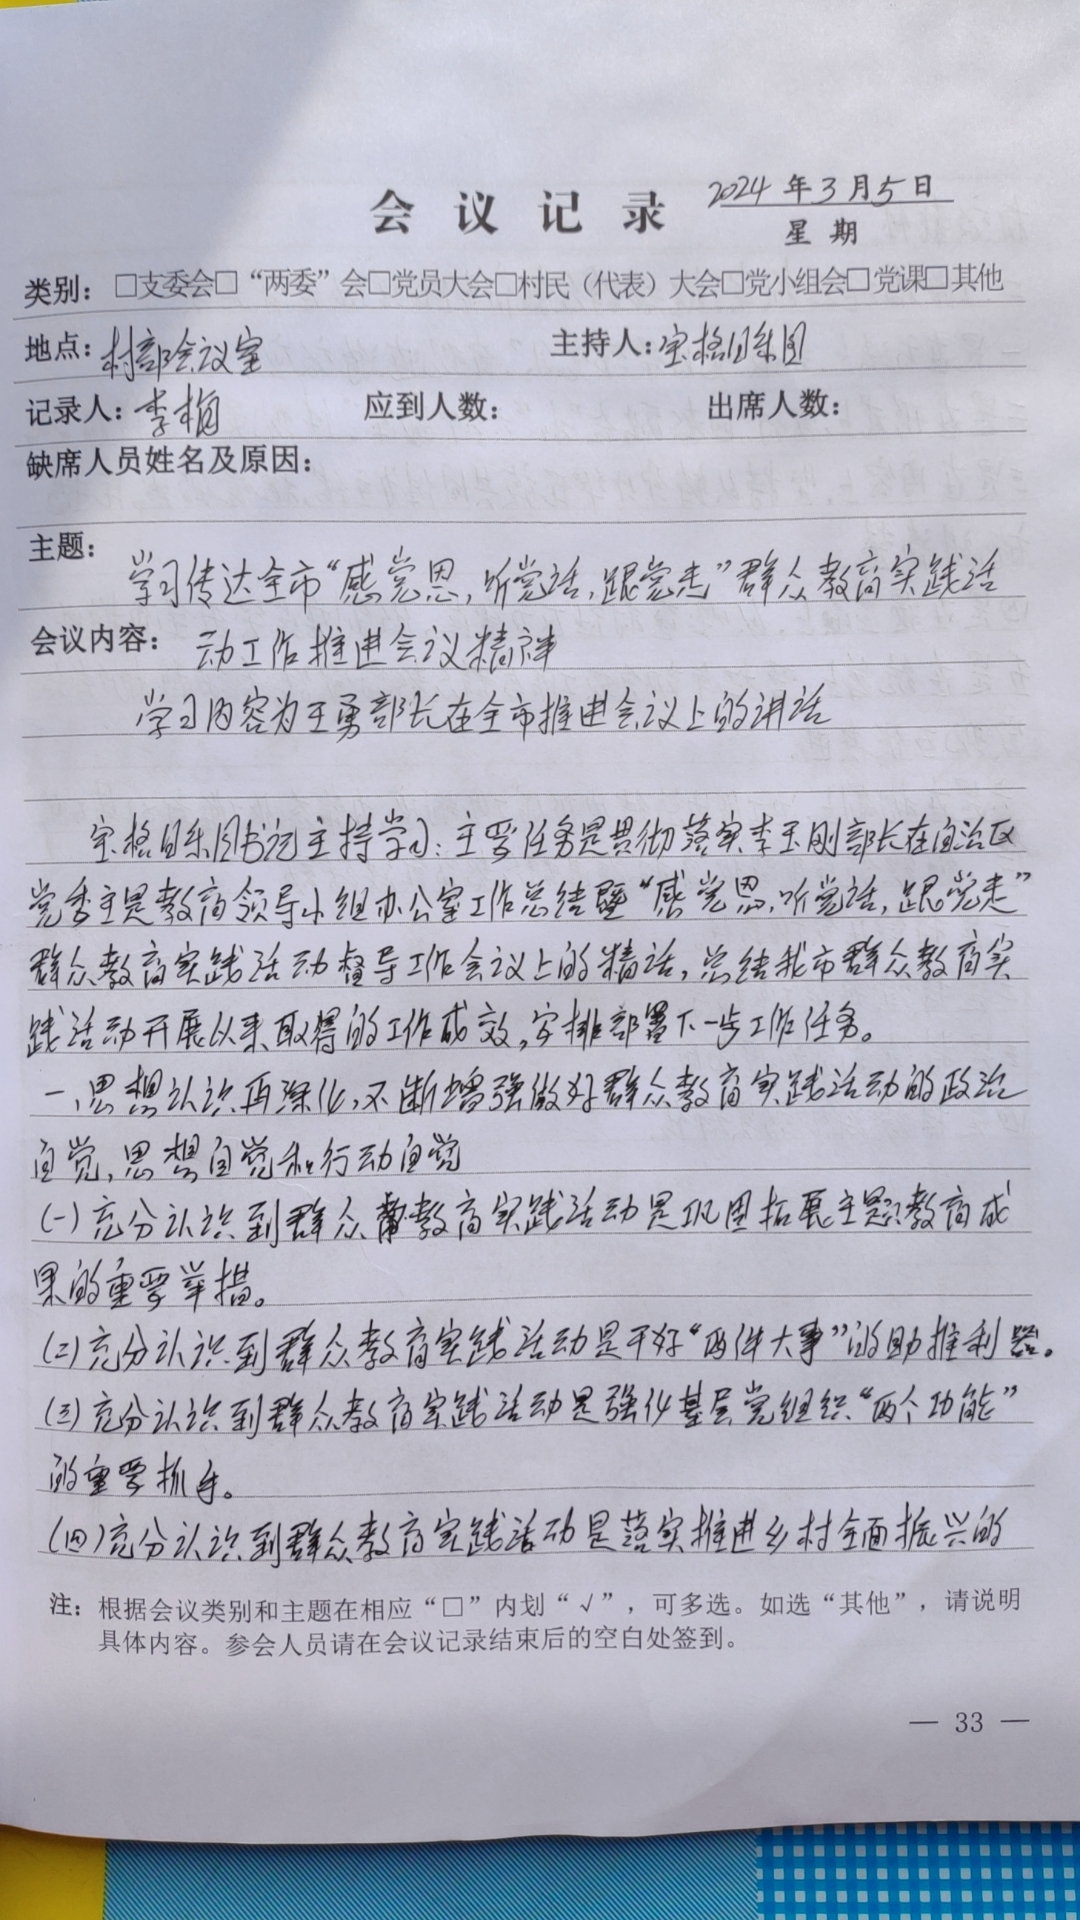 会 议 记 录 2024 年 3 月 5 日
星 期
类别：□支委会□“两委”会□党员大会□村民（代表）大会□党小组会□党课□其他
地点：村部会议室 主持人：宝格日乐图
记录人：李梅 应到人数： 出席人数：
缺席人员姓名及原因：
主题：学习传达全市“感党恩，听党话，跟党走”群众教育实践活
会议内容：动工作推进会议精神
学习内容为王勇部长在全市推进会议上的讲话
宝格日乐图书记主持学习：主要任务是贯彻落实李玉刚部长在自治区
党委主题教育领导小组办公室工作总结暨“感党恩，听党话，跟党走”
群众教育实践活动督导工作会议上的精话，总结我市群众教育实
践活动开展以来取得的工作成效，安排部署下一步工作任务。
一、思想认识再深化，不断增强做好群众教育实践活动的政治
自觉、思想自觉和行动自觉
（一）充分认识到群众教育实践活动是巩固拓展主题教育成
果的重要举措。
（二）充分认识到群众教育实践活动是干好“两件大事”的助推利器。
（三）充分认识到群众教育实践活动是强化基层党组织“两个功能”
的重要抓手。
（四）充分认识到群众教育实践活动是落实推进乡村全面振兴的
注：根据会议类别和主题在相应“□”内划“√”，可多选。如选“其他”，请说明
具体内容。参会人员请在会议记录结束后的空白处签到。
— 33 —